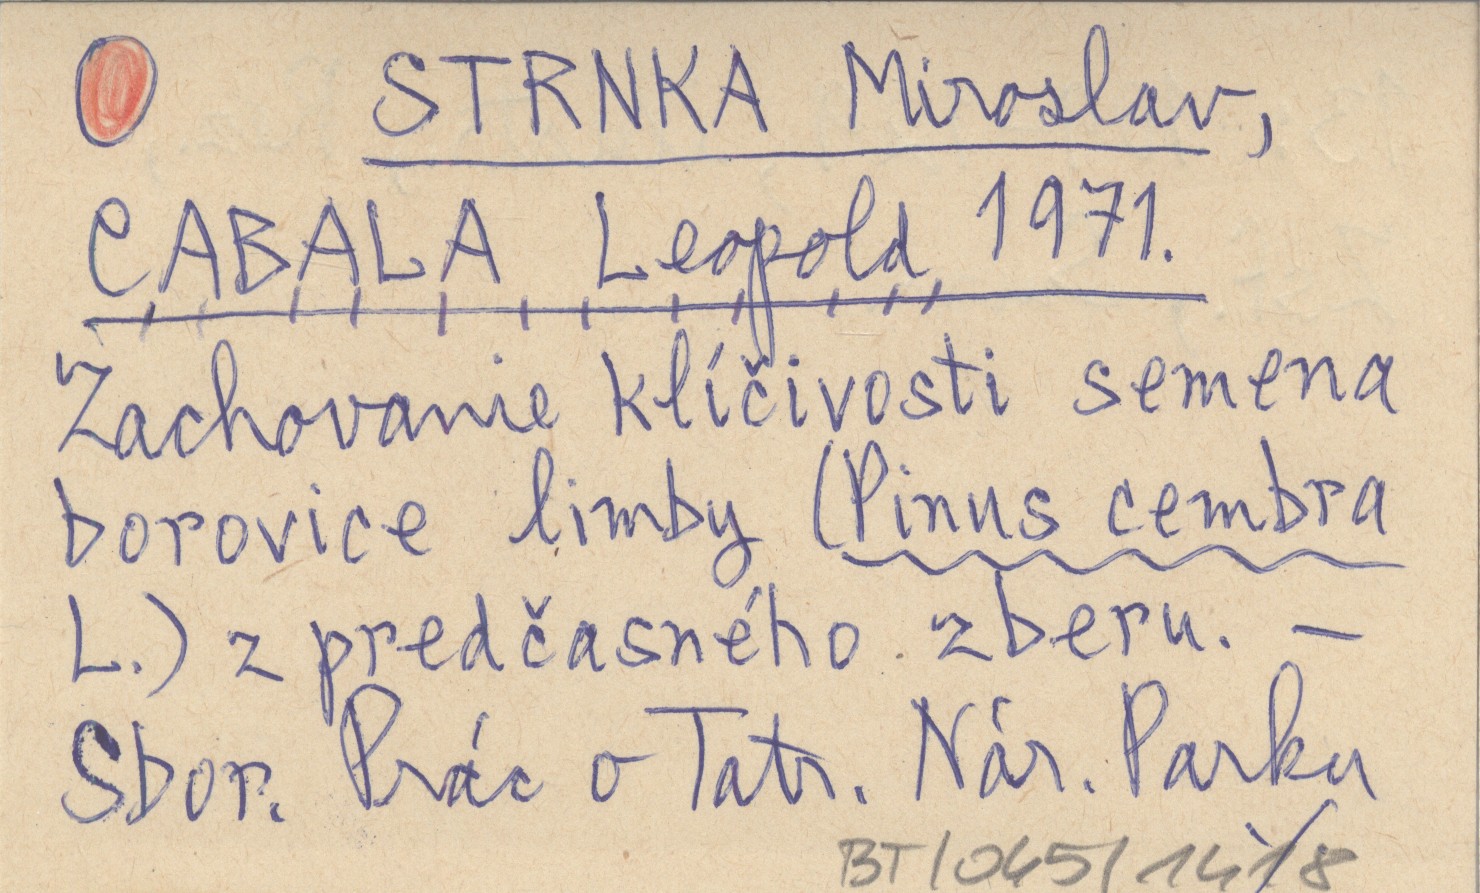 STRNKA Miroslav,
CABALA Leopold 1971.
Zachovanie klíčivosti semena
borovice limby (Pinus cembra
L.) z predčasného zberu. –
Sbor. Prác o Tatr. Nár. Parku
BT/045/14/8